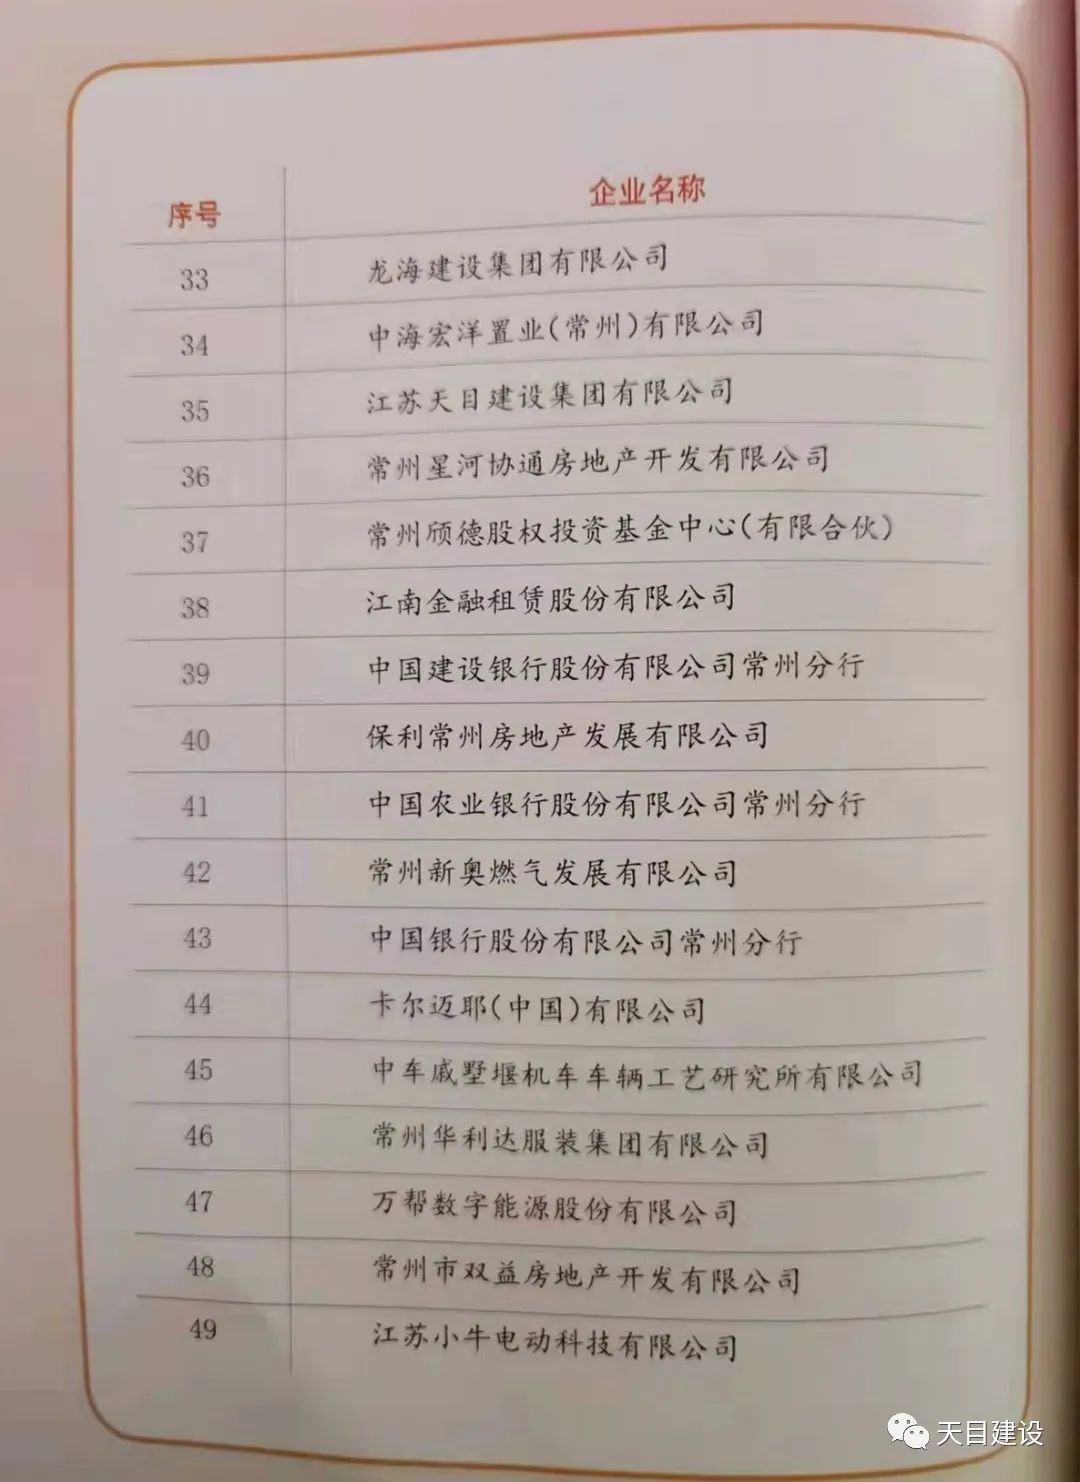 序号 企业名称
33 龙海建设集团有限公司
34 中海宏洋置业(常州)有限公司
35 江苏天目建设集团有限公司
36 常州星河协通房地产开发有限公司
37 常州颀德股权投资基金中心(有限合伙)
38 江南金融租赁股份有限公司
39 中国建设银行股份有限公司常州分行
40 保利常州房地产发展有限公司
41 中国农业银行股份有限公司常州分行
42 常州新奥燃气发展有限公司
43 中国银行股份有限公司常州分行
44 卡尔迈耶(中国)有限公司
45 中车戚墅堰机车车辆工艺研究所有限公司
46 常州华利达服装集团有限公司
47 万帮数字能源股份有限公司
48 常州市双益房地产开发有限公司
49 江苏小牛电动科技有限公司
天目建设